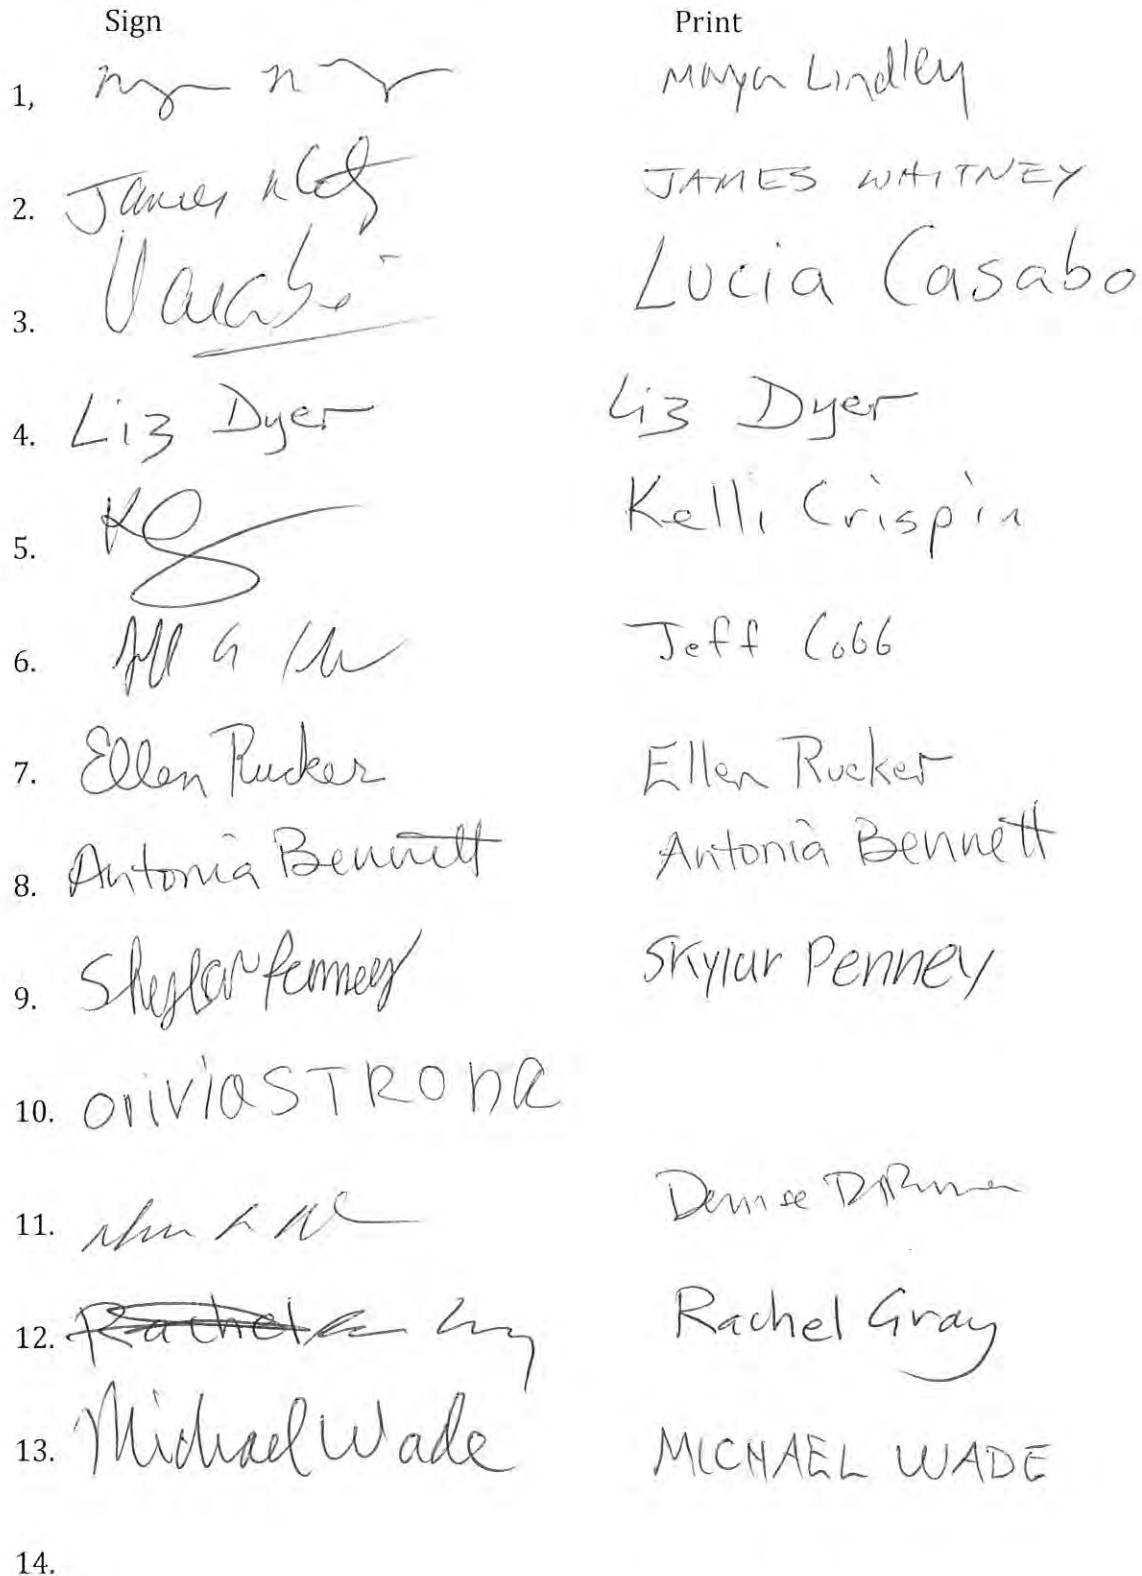 Sign Print
1, Maya Lindley
2. James JAMES WHITNEY
3. Lucia Casabo
4. Liz Dyer Liz Dyer
5. Kelli Crispin
6. Jeff Cobb
7. Ellen Rucker Ellen Rucker
8. Antonia Bennett Antonia Bennett
9. Skylar Penney Skylar Penney
10. OliviaSTRONG
11. Denise
12. Rachel Rachel Gray
13. Michael Wade MICHAEL WADE
14.